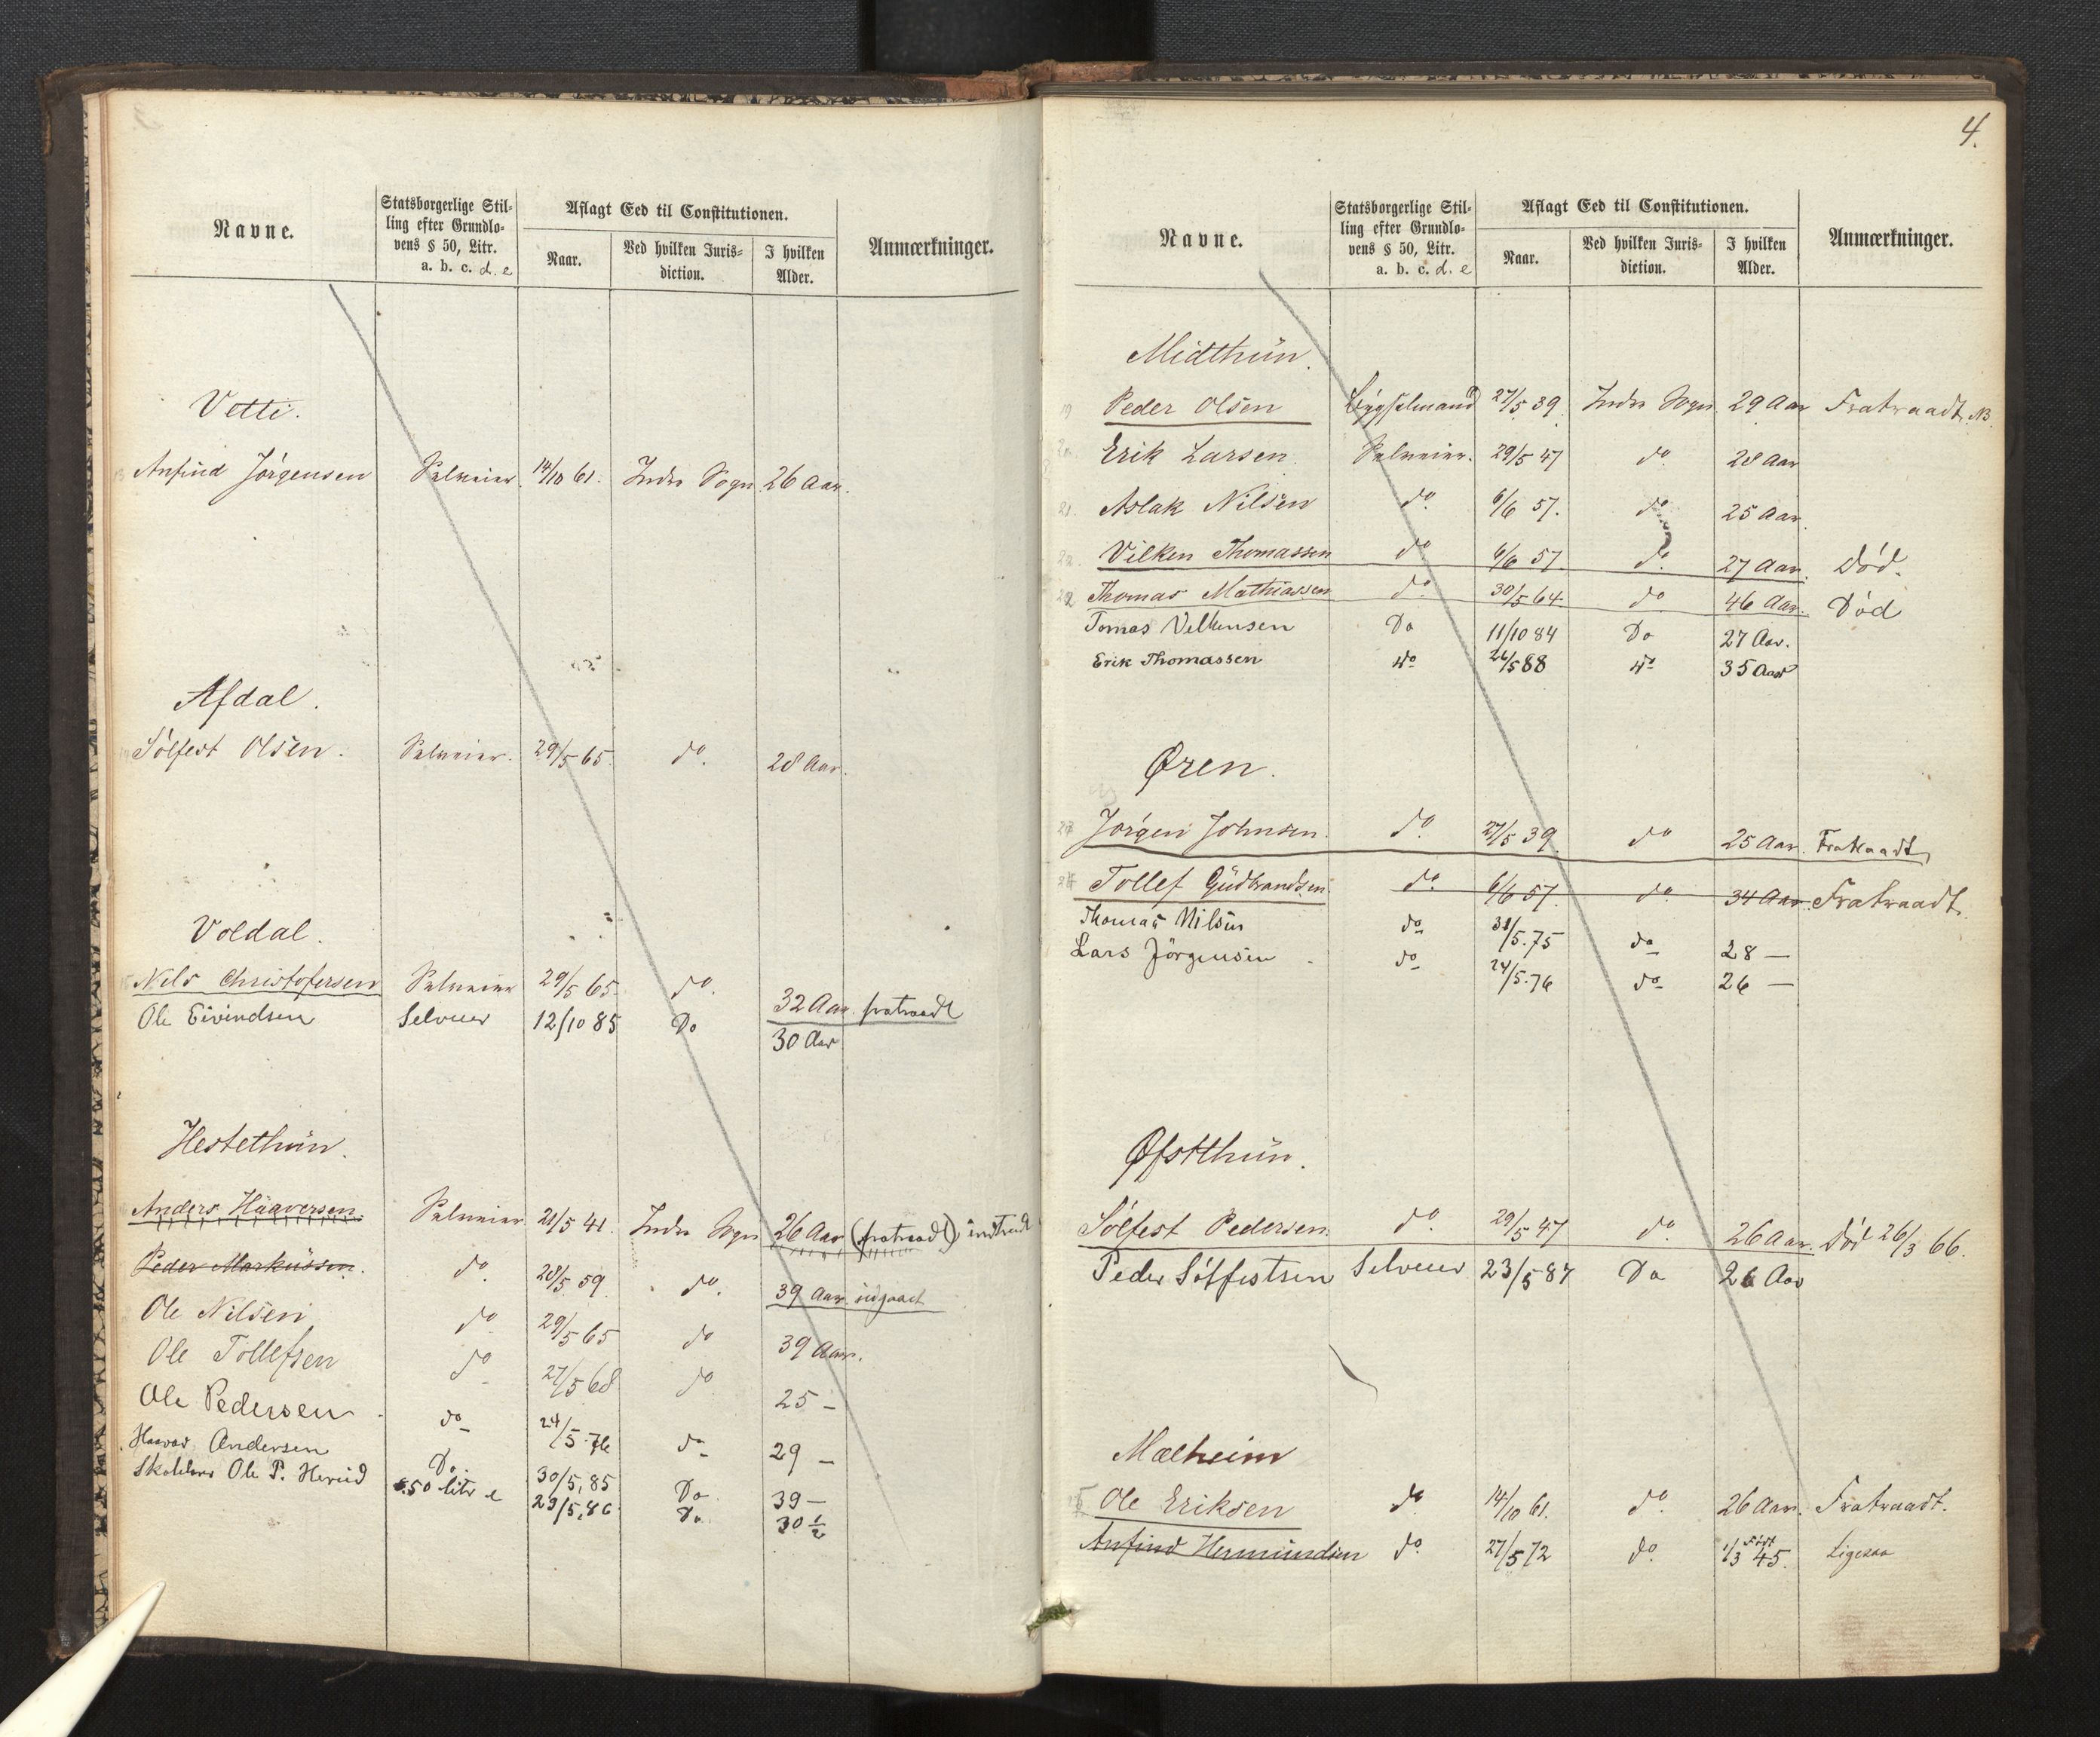 Navne.
Statsborgerlige Stil-
ling efter Grundlo-
vens § 50, Litr.
a. b. c. d. e
Aflagt Eed til Constitutionen.
Naar.
Ved hvilken Juris-
diction.
I hvilken
Alder.
Anmærkninger.
Vetti.
Anfind Jörgensen Selveier. 14/10 61. Indre Sogn 26 Aar.
Afdal.
Sölfest Olsen. Selveier. 29/5 65. do. 28 Aar.
Voldal.
Nils Christofersen Selveier 29/5 65. do. 32 Aar. fratraadt
Ole Eivindsen Selveier 12/10 85 Do 30 Aar
Hestethun.
Anders Haaversen Selveier 21/5 41 Indre Sogn 26 Aar (fratraadt) indtraadt
Peder Markussen. do. 28/5 59. do. 39 Aar. udgaaet
Ole Nilsen do 29/5 65 do 39 Aar.
Ole Tollefsen do 27/5 68 do 25 –
Ole Pedersen do 24/5.76 do 29 –
Haavar Andersen Do. 30/5,85 Do 39 –
Ole P. Hereid §50 litr e 23/5,86 Do 30 1/2
4.
Navne.
Statsborgerlige Stil-
ling efter Grundlo-
vens § 50, Litr.
a. b. c. d. e
Aflagt Eed til Constitutionen.
Naar.
Ved hvilken Juris-
diction.
I hvilken
Alder.
Anmærkninger.
Midthun.
19 Peder Olsen Bygselmand 27/5 39. Indre Sogn 29 Aar Fratraadt. NB.
20. Erik Larsen. Selveier. 29/5 47 do. 28 Aar
21. Aslak Nilsen do. 6/6 57. do 25 Aar.
22. Vilken Thomassen do 6/6 57. do. 27 Aar. Död.
Thomas Mathiassen do. 30/5 64. do 46 Aar. Död
Tomas Velkensen Do 11/10 84 Do 27 Aar.
Erik Thomassen do 26/5 88 do 35 Aar
Øren.
Jörgen Johnsen. do. 27/5 39. do 25 Aar. Fratraadt,
24 Tollef Gudbrandsen. do. 6/6 57. do. 34 Aar. Fratraadt.
Thomas Nilsen do 31/5.75 do 28 —
Lars Jörgensen do 24/5.76 do 26 —
Øfstthun.
Sölfest Pedersen. do. 29/5 47 do. 26 Aar. Död 26/3 66.
Peder Sölfestsen Selveier 23/5 87 Do 26 Aar
Mælheim
Ole Eriksen do 14/10 61. do. 26 Aar. Fratraadt.
Anfind Hermundsen do. 27/5 72 do. Födt 1/3 45. Ligesaa